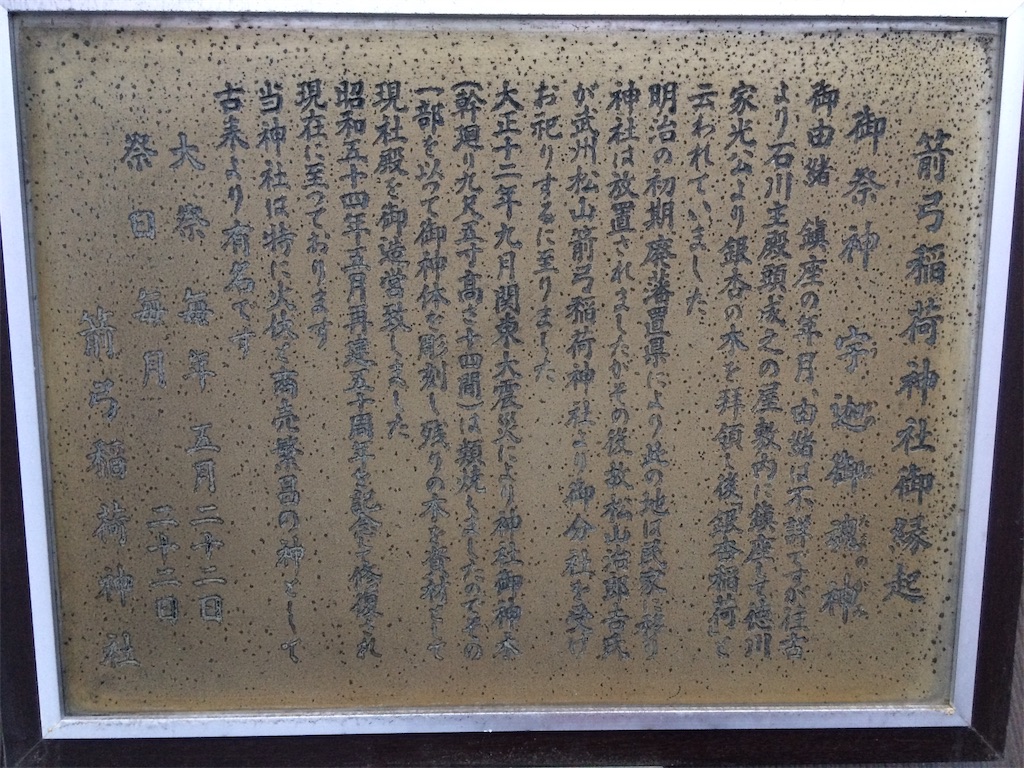 箭弓稲荷神社御縁起
御祭神 宇迦御魂神
御由緒 鎮座の年月、由緒は不詳ですが往古
より石川主殿頭の屋敷内に鎮座
家光公より銀杏の木を拝領し後「銀杏稲荷」と
云われていました
明治の初期廃藩置県により此の地は民家に移り
神社は放置されましたがその後故松山治郎吉氏
が武州松山箭弓稲荷神社より御分社を受け
お祀りするに至りました
大正十二年九月関東大震災により神社御神木
(幹廻り九尺五寸高さ十四間)は類焼しましたのでその
一部を以って御神体を彫刻し残りの木を
現社殿を御造営致しました
昭和五十四年五月再建五十周年を記念して修復され
現在に至っております
当神社は特に火伏と商売繁昌の神として
古来より有名です
大祭 毎年 五月二十二日
祭日 毎月 二十二日
箭弓稲荷神社